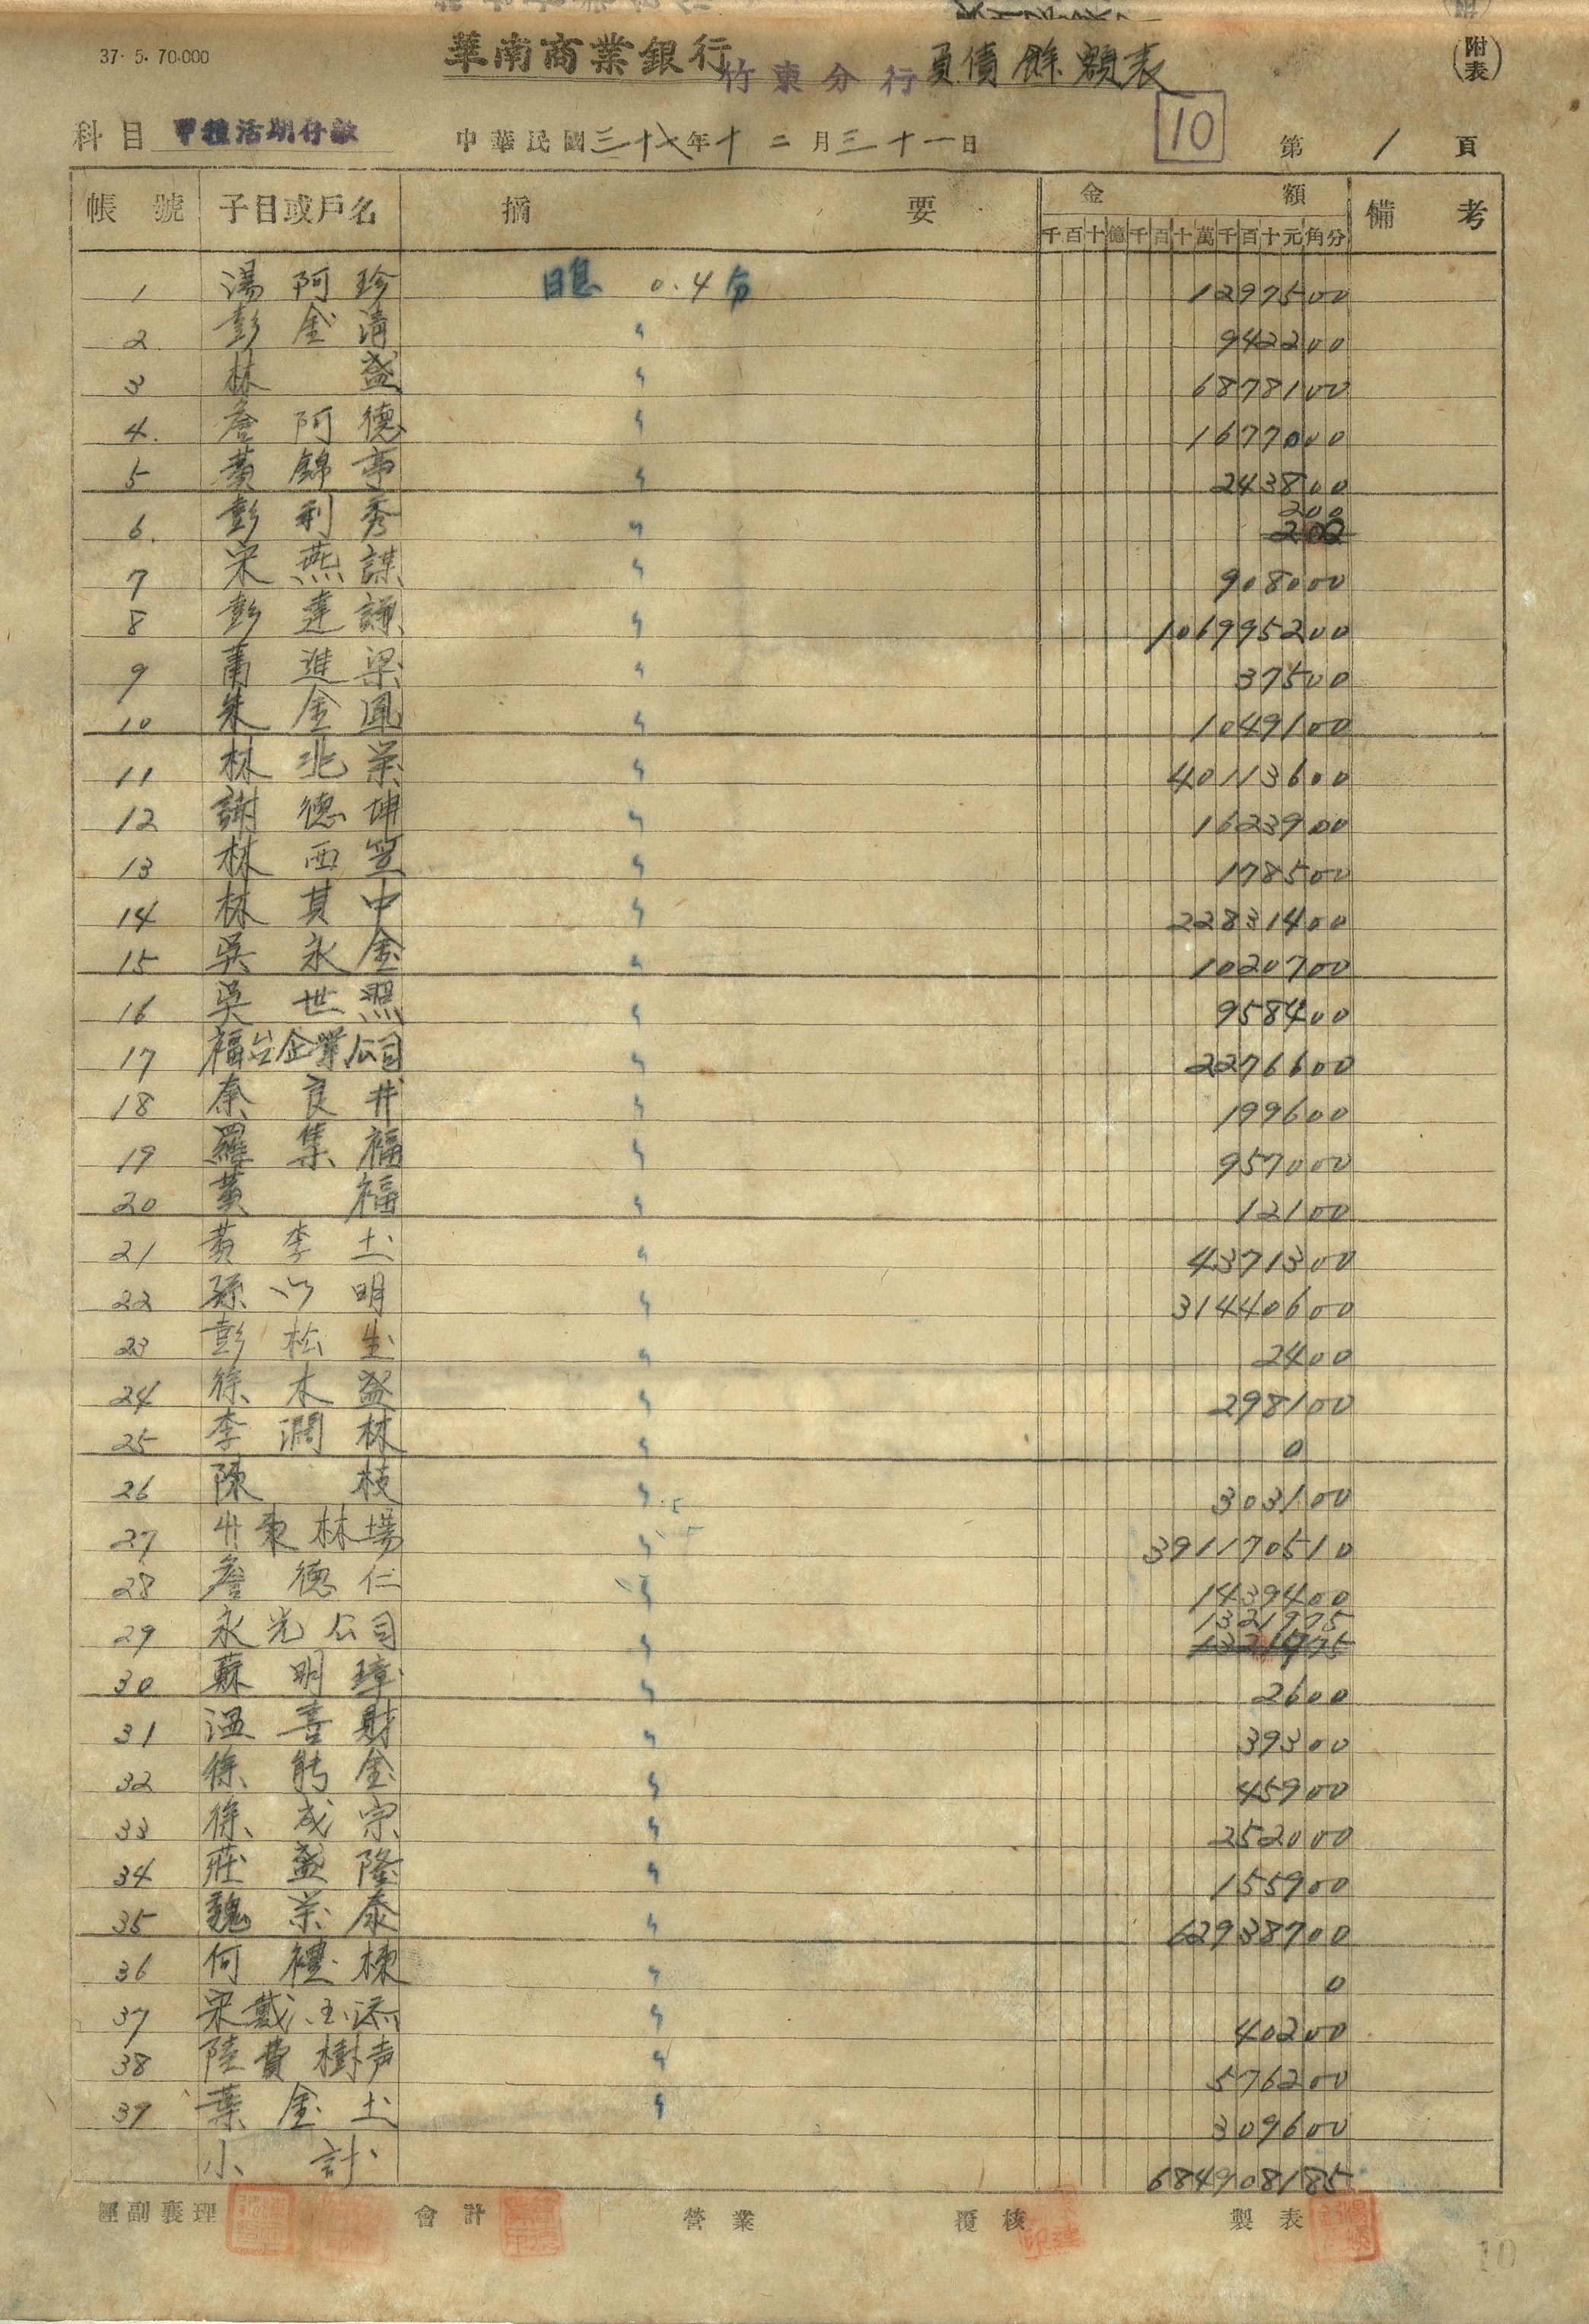 37. 5. 70.000
華南商業銀行 竹東分行 負債餘額表 (附表)
科目 甲種活期存款 中華民國三十七年十二月三十一日 10 第 1 頁
帳號 子目或戶名 摘要 金額 備考
千百十億千百十萬千百十元角分
1 湯阿珍 日息 0.4分 1297500
2 彭金清 〃 942200
3 林盛 〃 6878100
4. 詹阿德 〃 1677000
5 黃錦亭 〃 243800
200
6. 彭利秀 〃 202
7 宋燕謀 〃 908000
8 彭達謙 〃 106995200
9 蕭進梁 〃 37500
10 朱金鳳 〃 1049100
11 林兆榮 〃 40113600
12 謝德坤 〃 1623900
13 林西笠 〃 178500
14 林其中 〃 22831400
15 吳永金 〃 1020700
16 吳世照 〃 958400
17 福台企業公司 〃 2276600
18 秦良井 〃 199600
19 羅集福 〃 957000
20 黃福 〃 12100
21 黃李土 〃 4371300
22 孫以明 〃 31440600
23 彭松生 〃 2400
24 徐木盛 〃 298100
25 李潤林 〃 0
26 陳枝 〃 303100
27 竹東林場 〃 391170510
28 詹德仁 〃 1439400
1321975
29 永光公司 〃
30 蘇明璋 〃 2600
31 溫喜財 〃 39300
32 徐能金 〃 45900
33 徐成宗 〃 252000
34 莊盛隆 〃 155900
35 魏榮泰 〃 62938700
36 何禮棟 〃 0
37 宋戴玉添 〃 40200
38 陸費樹声 〃 576200
39 葉金土 〃 309600
小計 684908185
經副襄理 會計 營業 覆核 製表
10